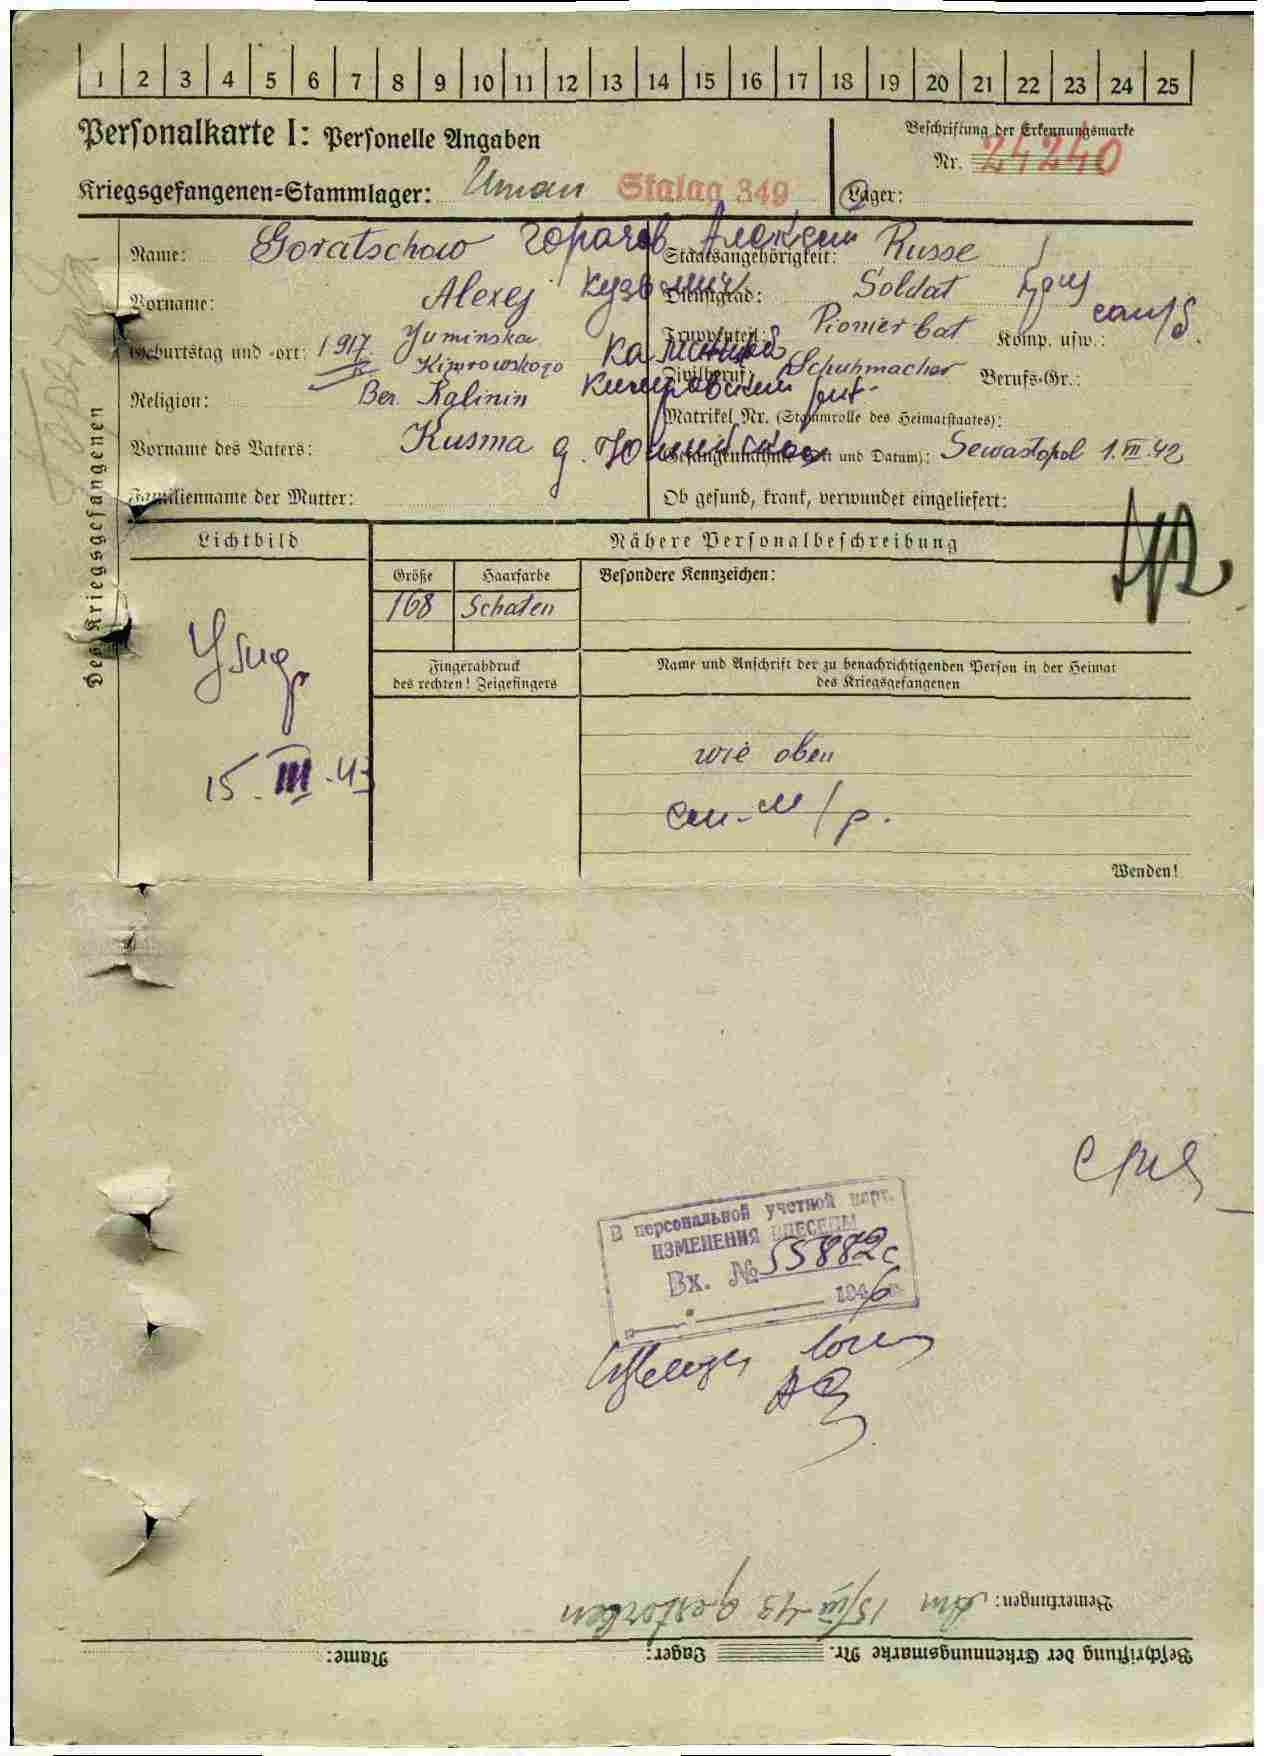 1 2 3 4 5 6 7 8 9 10 11 12 13 14 15 16 17 18 19 20 21 22 23 24 25
Personalkarte I: Personelle Angaben
Beschriftung der Erkennungsmarke
Nr. 24240
Kriegsgefangenen=Stammlager: Uman Stalag 349
Lager:
Des Kriegsgefangenen
Name: Goratschow Горачев Алексей
Staatsangehörigkeit: Russe
Vorname: Alexej Кузьмич
Dienstgrad: Soldat
Geburtstag und -ort: 1917 Juminska
Kimrowskogo
Ber. Kalinin
Truppenteil: Pionier bat Komp. usw.:
Zivilberuf: Schuhmacher Berufs-Gr.:
Religion:
Matrikel Nr. (Stammrolle des Heimatstaates):
Vorname des Vaters: Kusma
Gefangennahme (Ort und Datum): Sewastopol 1.VII.42
Familienname der Mutter:
Ob gesund, krank, verwundet eingeliefert:
Lichtbild
Nähere Personalbeschreibung
Größe
Haarfarbe
Besondere Kennzeichen:
168
Schaten
Fingerabdruck
des rechten! Zeigefingers
Name und Anschrift der zu benachrichtigenden Person in der Heimat
des Kriegsgefangenen
15.III.43
wie oben
Wenden!
В персональной учетной карт.
ИЗМЕНЕНИЯ ВНЕСЕНЫ
Вх. № 55882с
1946 г.
Bemerkungen: Am 15/III-43 gestorben
Beschriftung der Erkennungsmarke Nr. Lager: Name: